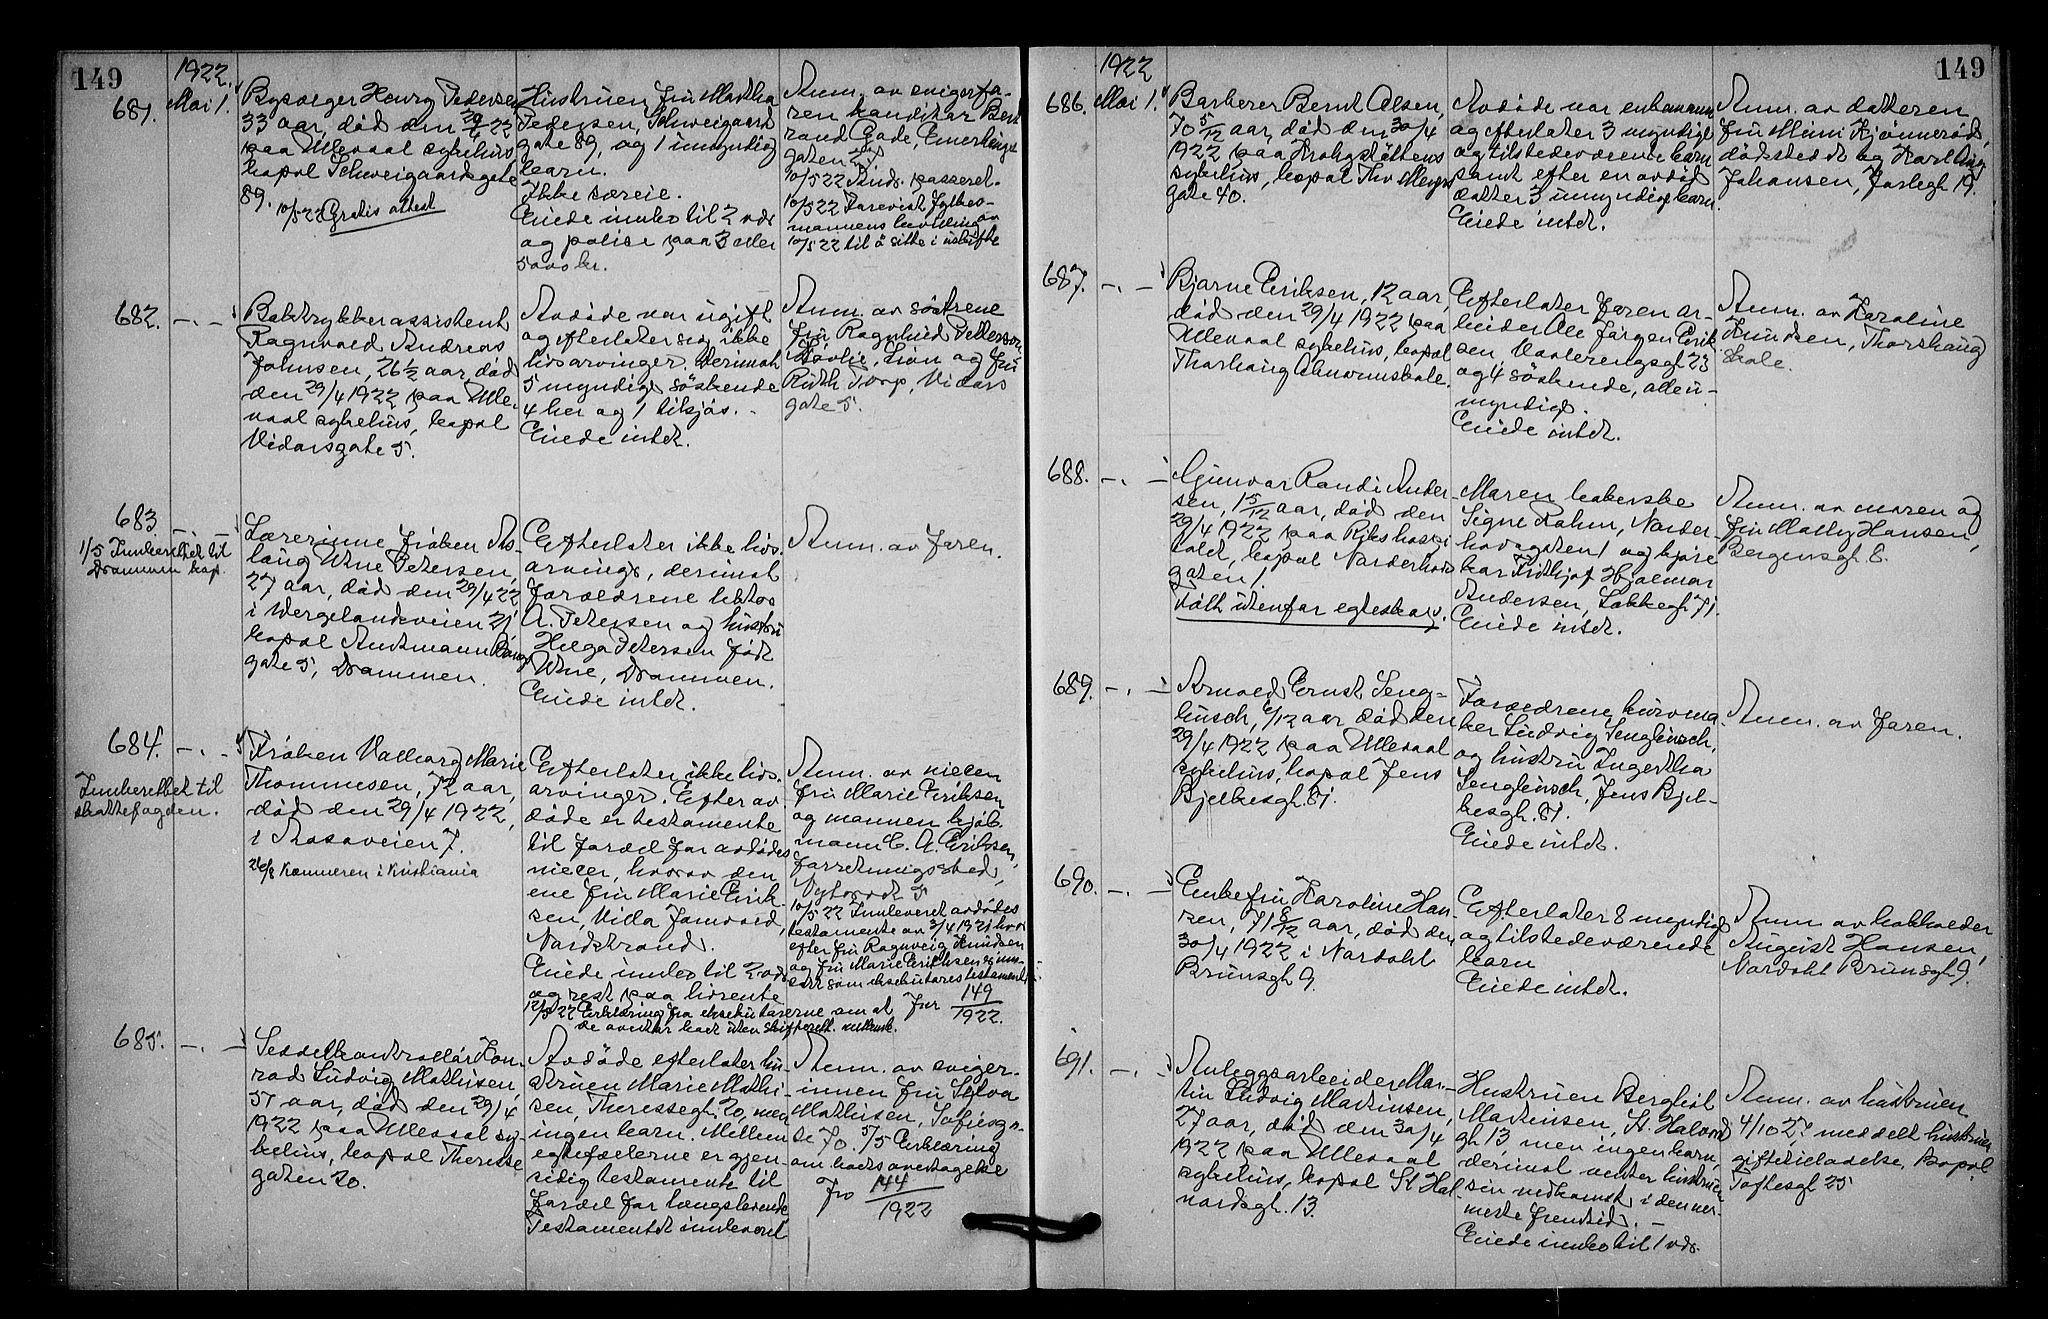 149
1922.
681.
Mai 1.
Bysælger Henry Pedersen
33 aar, død den 29/4 22
paa Ullevaal sykehus,
bopæl Schweigaardsgate
89.
10/5 22 Gratis attest
Hustruen fru Martha
Pedersen, Schweigaards
gate 89, og 1 umyndig
barn.
Ikke særeie.
Eiede innbo til 2 vær
og polise paa 3 eller
5000 kr.
Anm. av svigerfa-
ren handskar Bert
rand Gade,
gaten
10/5 22 passeret.
10/5 22 Forevist fylkes-
mannens bevilling av
10/5 22 til å sitte i uskifte
682.
—.—
Boktrykkerassistent
Ragnvald Andreas
Johnsen, 26 1/2 aar, død
den 29/4 1922 paa Ulle
vaal sykehus, bopæl
Vidarsgate 5.
Avdøde var ugift
og efterlater sig ikke
livsarvinger. Derimot
5 myndige söskende
4 her og 1 tilsjøs. -
Eiede intet.
Anm. av söstrene
fru Ragnhild Petterson
Lien og fru
Ruth Torp, Vidars
gate 5.
683
—.—
1/5 Innberettet til
Drammen
Lærerinne frøken As-
laug Wne Petersen,
27 aar, død den 29/4 22
i Wergelandsveien 21
bopæl Amtmann Bangs
gate 5, Drammen.
Efterlater ikke livs-
arvinge, derimot
forældrene lektor
A. Petersen og hustru
Helga Petersen født
Wne, Drammen.
Eiede intet.
Anm. av faren.
684.
—.—
Innberettet til
skattefogden.
Frøken Valborg Marie
Thommesen, 72 aar,
død den 29/4 1922,
i Aasaveien 7.
26/8 Kæmneren i Kristiania
Efterlater ikke livs-
arvinger. Efter av
døde er testamente
til fordel for avdødes
niecer, hvorav den
ene fru Marie Erik-
sen, Villa Furuvold,
Nordstrand.
Eiede innbo til 2 vær
og rest paa livrente
12/5 22 Erklæring fra eksekutorerne om at
de overtar boet uten skifterett. medvirk.
Anm. av niecen
fru Marie Eriksen
og mannen kjøb-
mann E. A. Eriksen,
forretningssted,
Nytorvet 5
10/5 22 Innleveret avdødes
testamente av 3/4 1921 hvor
efter fru Ragnveig Knudsen
og fru Marie Eriksen er inn-
satt som eksekutores testamenti
Jnr 149/1922.
685.
—.—
Seddelkontrollør Kon-
rad Ludvig Mathisen,
57 aar, død den 29/4
1922 paa Ullevaal sy-
kehus, bopæl Therese
gaten 20.
Avdøde efterlater hu-
struen Marie Mathi-
sen, Theresesgt. 20, men
ingen barn. Mellem
egtefællerne er gjen
sidig testamente til
fordel for længstlevende
Testamentet innleveret
Anm. av sviger-
innen fru Selva
Mathisen, Sofiesga-
te 70. 5/5 Erklæring
om boets overtagelse
Jno 144/1922
149
1922
686.
Mai 1.
Barberer Bernt Olsen,
70 5/12 aar, død den 30/4
1922 paa Krohgstøttens
sykehus, bopæl Thv Meyers
gate 40.
Avdøde var enkemann
og efterlater 3 myndige
og tilstedeværende barn
samt efter en avdød
datter 3 umyndige barn
Eiede intet.
Anm. av datteren
fru Mimi Kjønnerød,
dødstedet og Karl Aug
Johansen, Jarlegt 19.
687.
—.—
Bjarne Eriksen, 12 aar,
død den 29/4 1922 paa
Ullevaal sykehus, bopæl
Thorshaug Abnormskole.
Efterlater faren ar-
beider Ole Jørgen Erik
sen, Vaalerengsgt 23
og 4 söskende, alle u-
myndige.
Eiede intet.
Anm. av Karoline
Knudsen, Thorshaug
skole.
688.
—.—
Gunvor Randi Ander-
sen, 1 5/12 aar, død den
29/4 1922 paa Rikshospi
talet, bopæl Norderhovs
gaten 1.
Født utenfor egteskap.
Moren kokerske
Signe Rahm, Norder-
hovsgaten 1 og kjøre
kar Fridtjof Hjalmar
Andersen, Løkkegt. 71.
Eiede intet.
Anm. av moren og
fru Molly Hansen,
Bergensgt. 8.
689.
—.—
Arnold Ernst Seng-
busch, 6/12 aar død den
29/4 1922 paa Ullevaal
sykehus, bopæl Jens
Bjelkesgt. 81.
Forældrene kurvma-
ker Ludvig Sengbusch,
og hustru Ingertha
Sengbusch, Jens Bjel-
kesgt. 81.
Eiede intet.
Anm. av faren.
690.
—.—
Enkefru Karoline Han-
sen, 71 8/12 aar, død den
30/4 1922 i Nordahl
Brunsgt 9.
Efterlater 8 myndige
og tilstedeværende
barn
Eiede intet.
Anm. av bokholder
August Hansen,
Nordahl Brunsgt 9.
691.
—.—
Anleggsarbeider Mar-
tin Ludvig Martinsen,
27 aar, død den 30/4
1922 paa Ullevaal
sykehus, bopæl St Hal-
vardsgt. 13.
Hustruen Bergliot
Martinsen, St. Halvard
gt 13, men ingen barn,
derimot venter hustruen
sin nedkomst i den nær-
meste fremtid. -
Eiede innbo til 1 vær.
Anm. av hustruen
4/10 27 meddelt hustruen
giftetilladelse, bopæl
Toftesgt 25